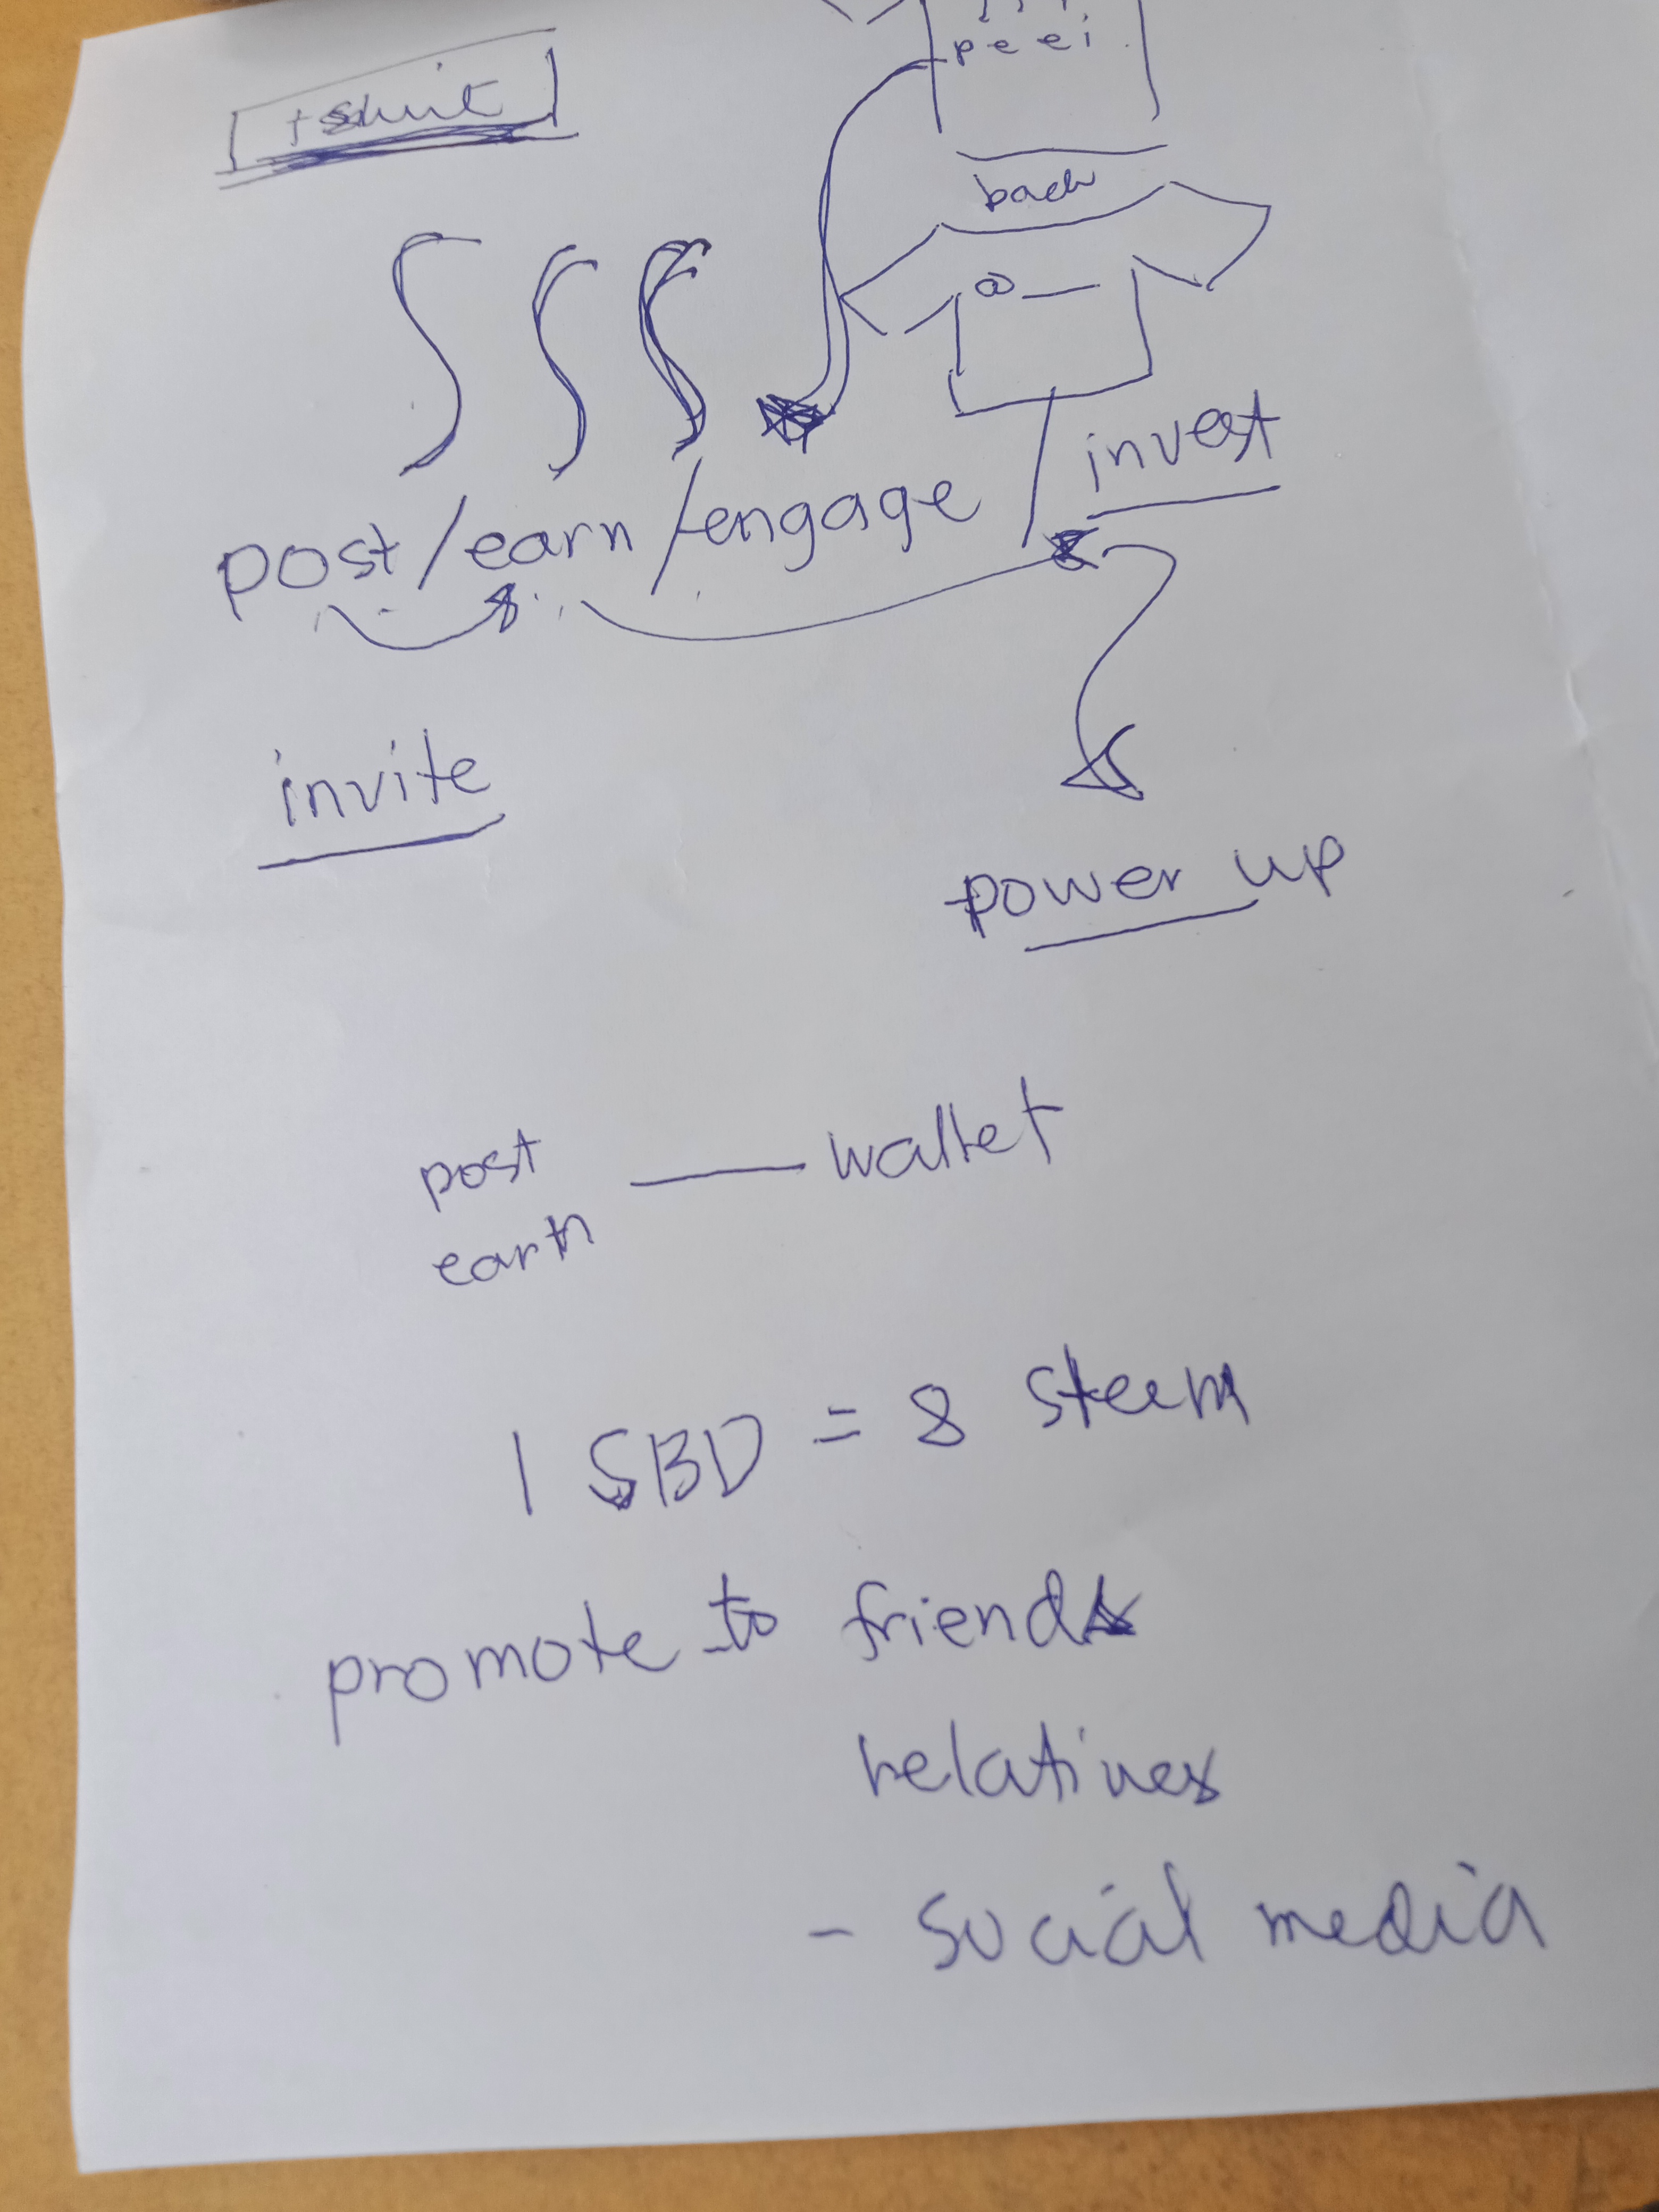 tshirt
p e e i
back
@
post/earn/engage/invest
invite
power up
post — wallet
earn
1 SBD = 8 steem
promote to friends
relatives
- social media